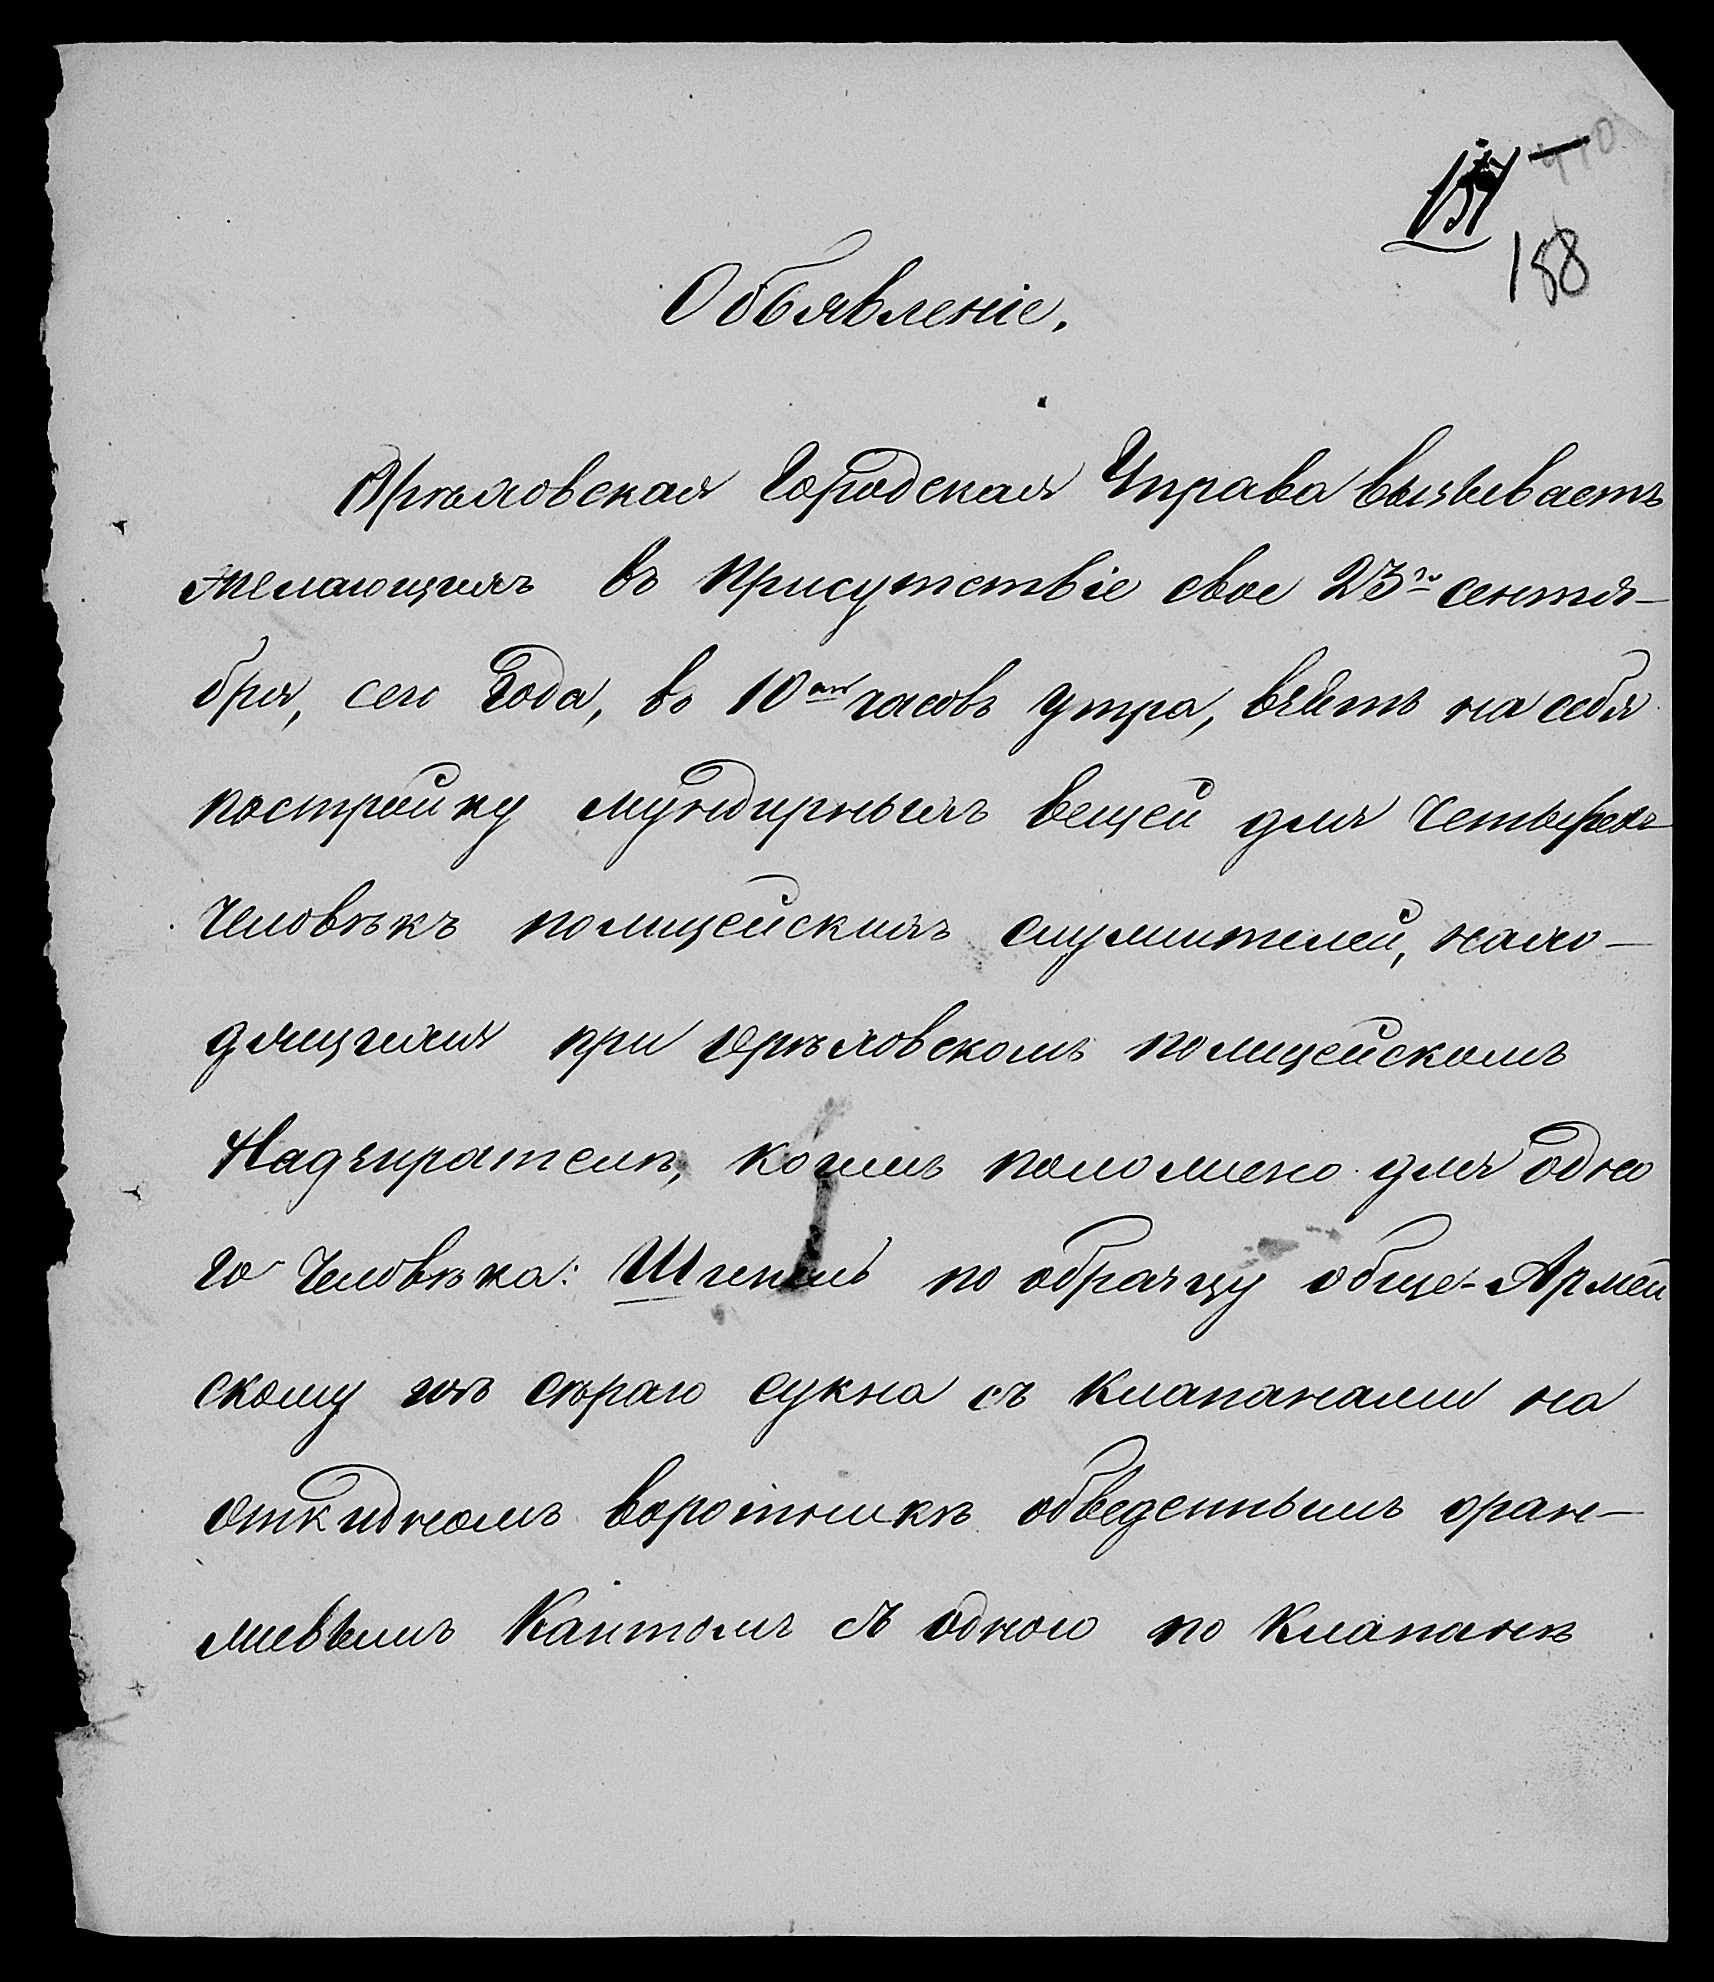 188
Объявленіе.
Орѣховская Городская Управа вызываетъ
желающихъ въ присутствіе свое 23го сентя-
бря, сего года, въ 10ть часовъ утра, взять на себя
постройку мундирныхъ вещей для четырехъ
человѣкъ полицейскихъ служителей, нахо-
дящихся при Орѣховскомъ полицейскомъ
Надзирателѣ, коимъ положено для одно
го человѣка: Шинель по образцу обще-Армей
скому изъ сѣраго сукна съ клапанами на
откидномъ воротникѣ обведеннымъ оран-
жевымъ кантомъ съ одною по клапанѣ